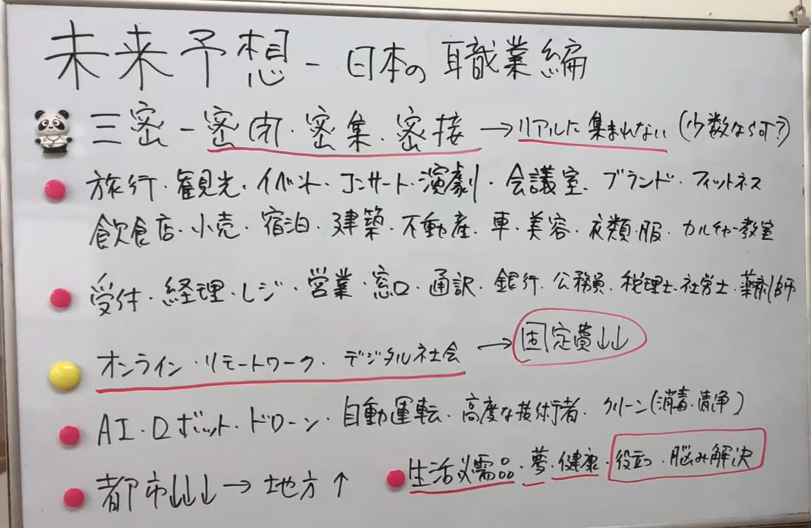 未来予想 - 日本の職業編
三密 - 密閉・密集・密接 → リアルに集まれない (少数なら可?)
旅行・観光・イベント・コンサート・演劇・会議室・ブランド・フィットネス
飲食店・小売・宿泊・建築・不動産・車・美容・衣類・服・カルチャー教室
受付・経理・レジ・営業・窓口・通訳・銀行・公務員・税理士・社労士・薬剤師
オンライン・リモートワーク・デジタル社会 → 固定費↓↓
AI・ロボット・ドローン・自動運転・高度な技術者・クリーン(消毒・清浄)
都市↓↓↓ → 地方↑ 生活必需品・夢・健康・役立つ・脳み解決